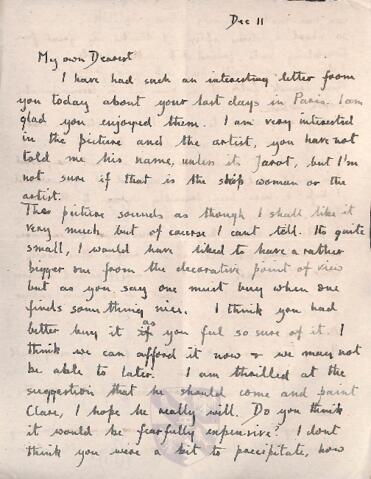 Dec 11
My own Dearest
I have had such an interesting letter from
you today about your last days in Paris. I am
glad you enjoyed them. I am very interested
in the picture and the artist, you have not
told me his name, unless its Jarot, but I'm
not sure if that is the woman or the
artist.
The picture sounds as though I shall like it
very much but of course I cant tell. Its quite
small, I would have liked to have a rather
bigger one from the decorative point of view
but as you say one must buy when one
finds something nice. I think you had
better buy it as you feel so sure of it. I
think we can afford it now & we may not
be able to later. I am thrilled at the
suggestion that he should come and paint
Clare, I hope he really will. Do you think
it would be fearfully expensive? I dont
think you were a bit to precipitate, how